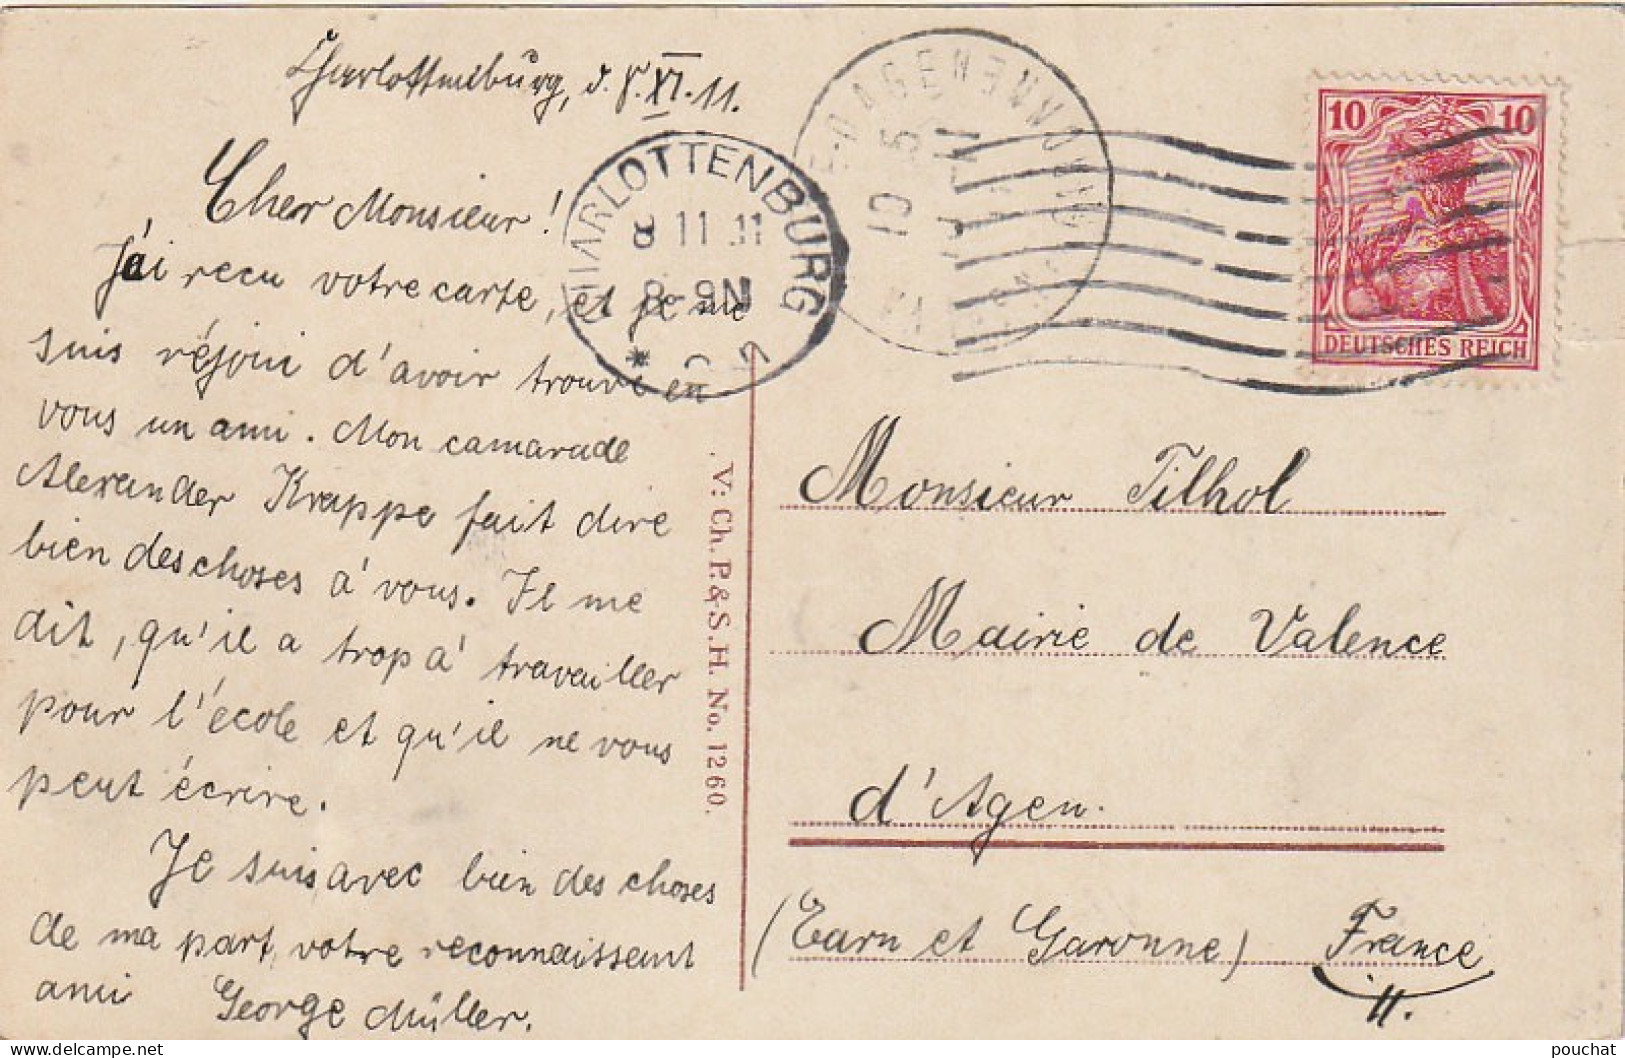 Charlottenburg, d. 8. XI. 11.
Cher Monsieur!
J'ai recu votre carte, et je me
suis réjoui d'avoir trouvé en
vous un ami. Mon camarade
Alexander Krappe fait dire
bien des choses à vous. Il me
dit, qu'il a trop à travailler
pour l'école et qu'il ne vous
peut écrire.
Je suis avec bien des choses
de ma part, votre reconnaissant
ami George Müller.
CHARLOTTENBURG
8 11 11
8-9N
*
V: Ch. P. & S. H. No. 1260.
VALENCE D'AGEN
TARN-ET-GARONNE
10 10
DEUTSCHES REICH
Monsieur Tilhol
Mairie de Valence
d'Agen.
(Tarn et Garonne) France
pouchat